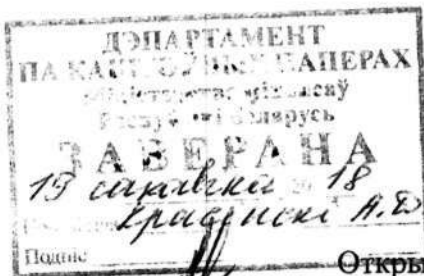 ДЭПАРТАМЕНТ
ПА КАШТОЎНЫХ ПАПЕРАХ
Міністэрства фінансаў
Рэспублікі Беларусь
ЗАВЕРАНА
13 сакавіка 20 18
А.В
Подпіс
Откры